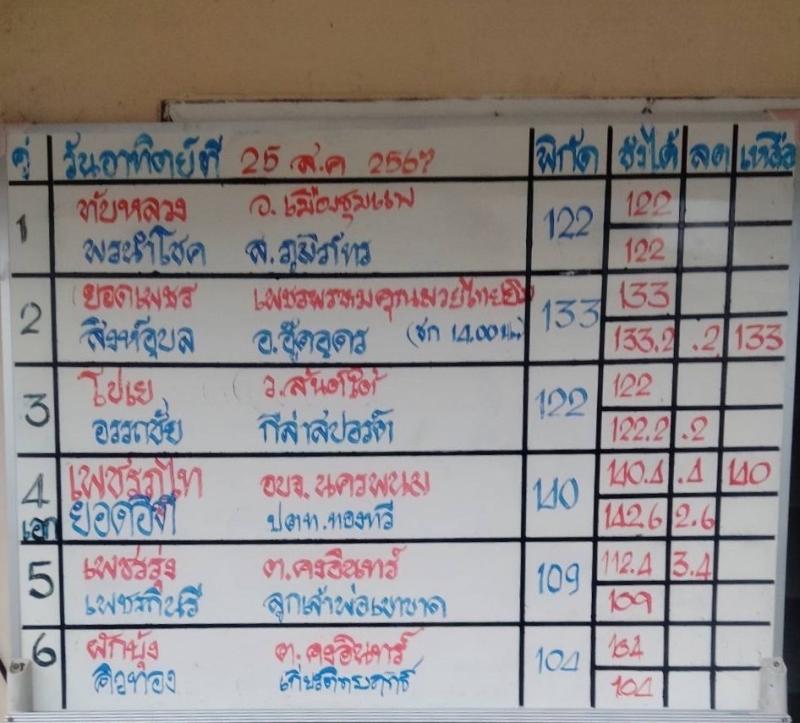 คู่ วันอาทิตย์ที่ 25 ส.ค 2567 พิกัด ชั่งได้ ลด เหลือ
1 ทับหลวง อ.เมืองชุมแพ 122 122
พระนำโชค ส.ภูมิภัทร 122
2 ยอดเพชร 133 133
สิงห์อุบล อ.อู๊ดอุดร (ชก 14.00 น.) 133.2 .2 133
3 โปเย ว.สันต์ใต้ 122 122
อรรถชัย กีล่าสปอร์ต 122.2 .2
4 เพชรภูไท อบจ.นครพนม 140 140.4 .4 140
เอก ยอดอีที ปตท.ทองทวี 142.6 2.6
5 เพชรรุ่ง ต.คงอินทร์ 109 112.4 3.4
เพชรกินรี ลูกเจ้าพ่อเขาขาด 109
6 ผักบุ้ง ต.คงอินทร์ 104 104
คิวทอง 104